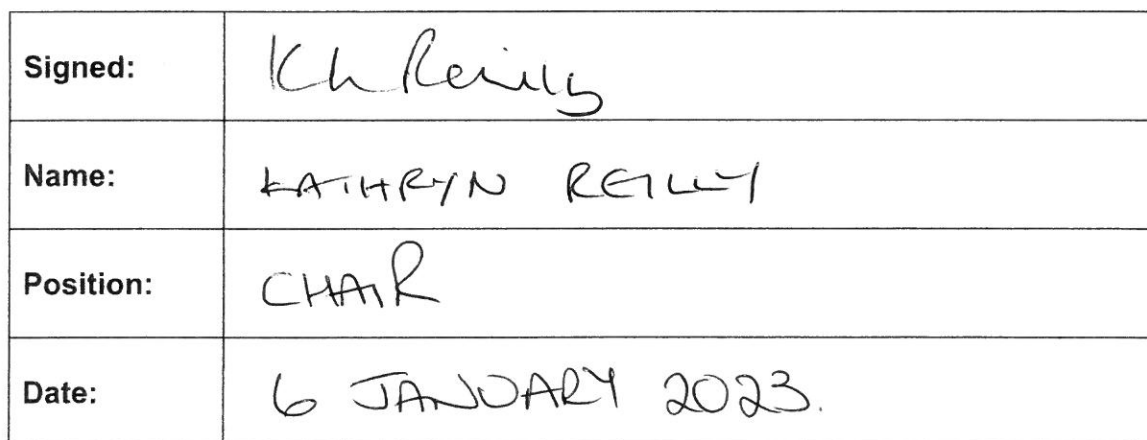 Signed: Kh Reilly
Name: KATHRYN REILLY
Position: CHAIR
Date: 6 JANUARY 2023.